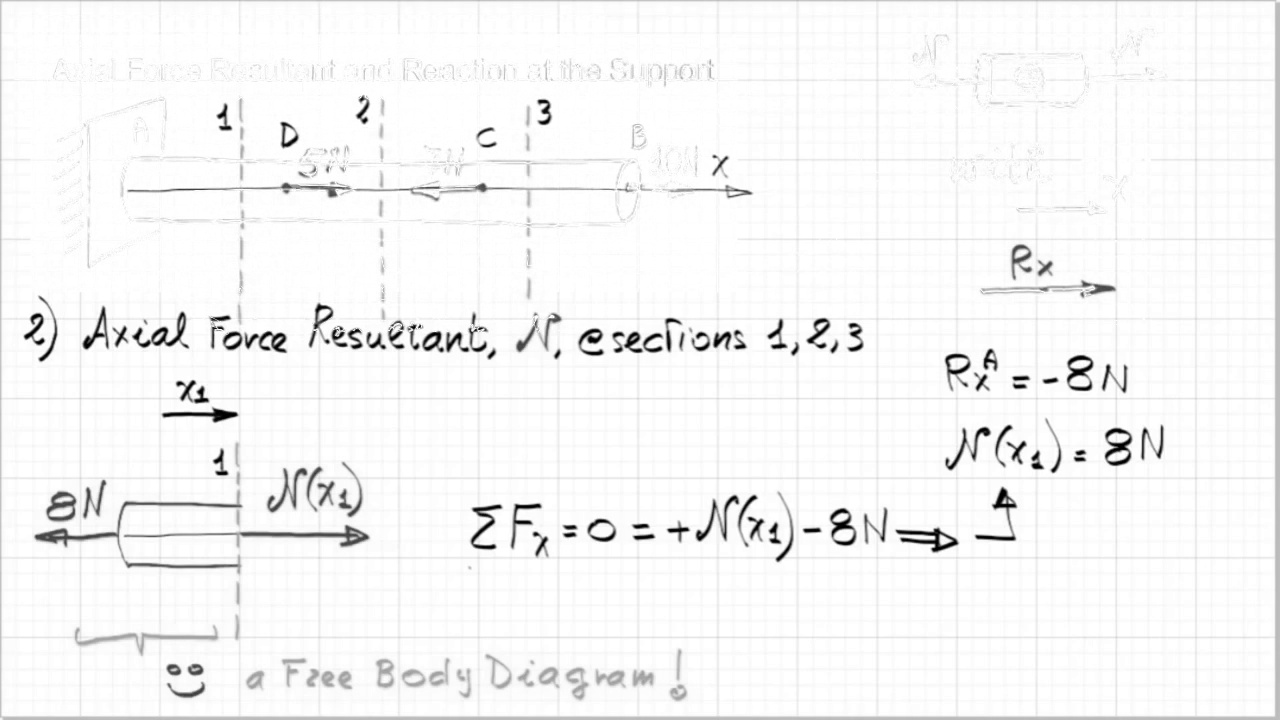 Axial Force Resultant and Reaction at the Support
N N
1 2 3
A D C B
5N 7N 10N x
x
Rx
2) Axial Force Resultant, N, @ sections 1, 2, 3
x₁
Rx^A = -8N
N(x₁) = 8N
1
8N N(x₁)
ΣFx = 0 = +N(x₁) - 8N ⇒
a Free Body Diagram!